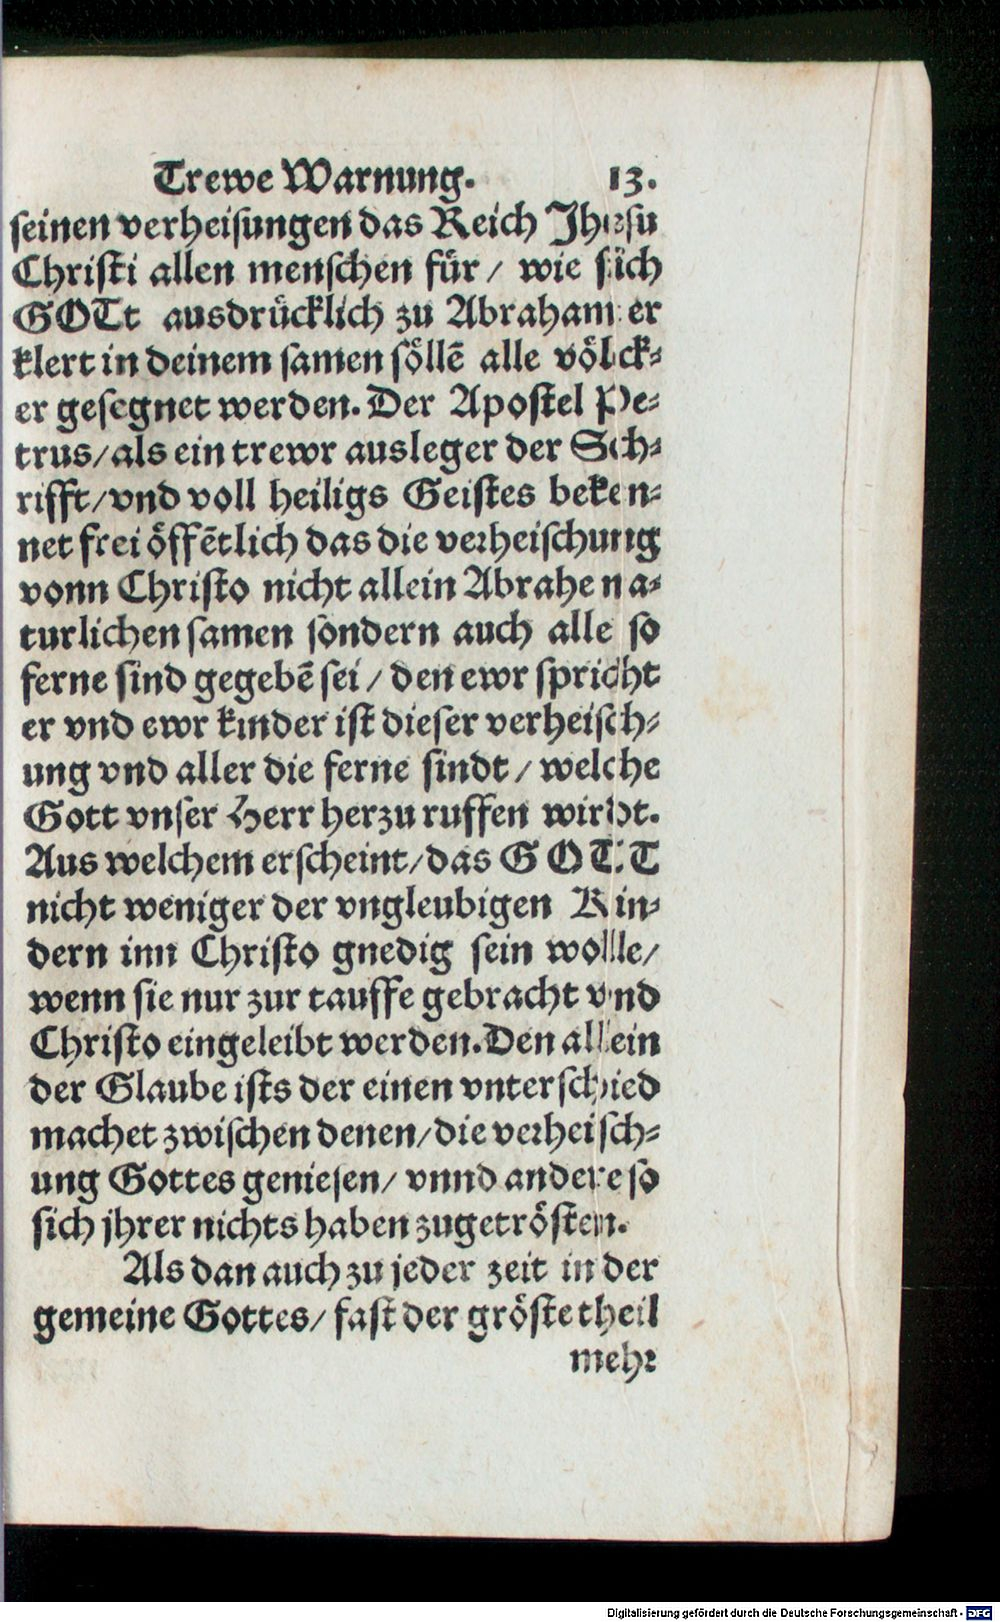 Trewe Warnung. 13.
seinen verheisungen das Reich Jhesu
Christi allen menschen für / wie sich
GOTt ausdrücklich zu Abraham er
klert in deinem samen söllē alle völck-
er gesegnet werden. Der Apostel Pe-
trus / als ein trewr ausleger der Sch-
rifft / vnd voll heiligs Geistes beken-
net frei öffētlich das die verheischung
vonn Christo nicht allein Abrahe na-
turlichen samen sondern auch alle so
ferne sind gegebē sei / den ewr spricht
er vnd ewr kinder ist dieser verheisch-
ung vnd aller die ferne sindt / welche
Gott vnser Herr herzu ruffen wirdt.
Aus welchem erscheint / das GOTT
nicht weniger der vngleubigen Kin-
dern inn Christo gnedig sein wolle /
wenn sie nur zur tauffe gebracht vnd
Christo eingeleibt werden. Den allein
der Glaube ists der einen vnterschied
machet zwischen denen / die verheisch-
ung Gottes geniesen / vnnd andere so
sich jhrer nichts haben zugetrösten.
Als dan auch zu jeder zeit in der
gemeine Gottes / fast der gröste theil
mehr
Digitalisierung gefördert durch die Deutsche Forschungsgemeinschaft - DFG